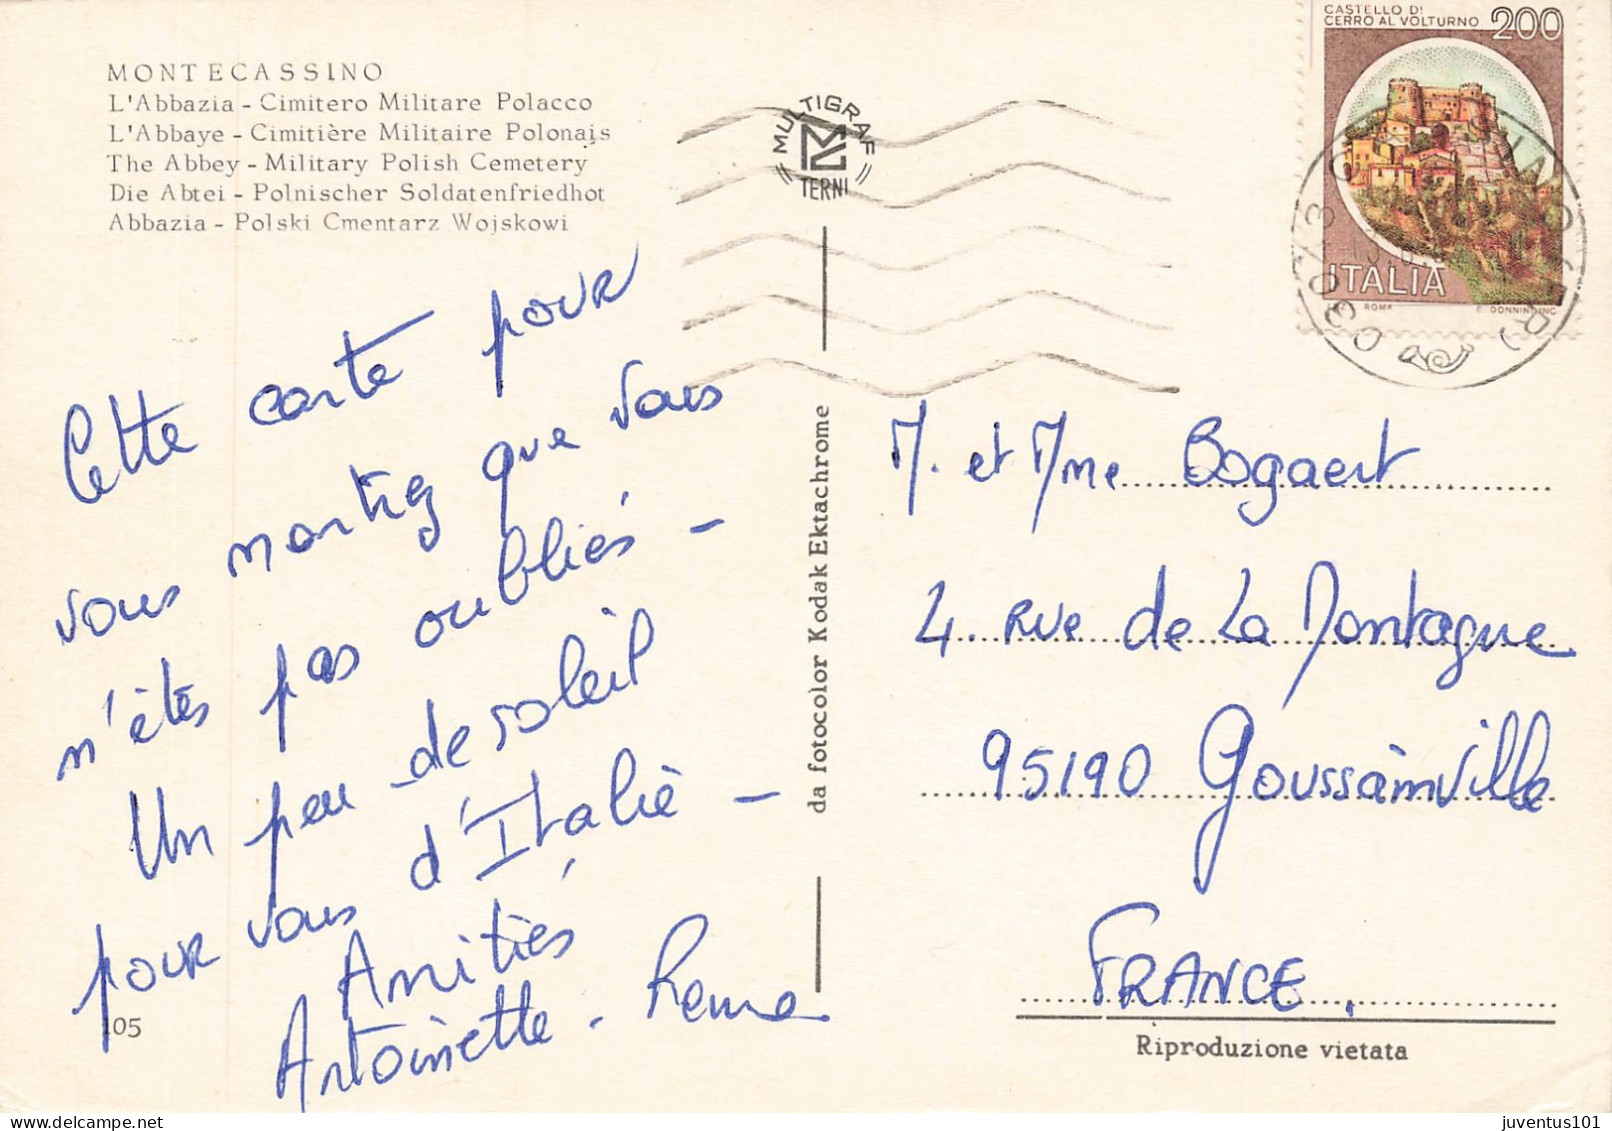 MONTECASSINO
L'Abbazia - Cimitero Militare Polacco
L'Abbaye - Cimitière Militaire Polonais
The Abbey - Military Polish Cemetery
Die Abtei - Polnischer Soldatenfriedhot
Abbazia - Polski Cmentarz Wojskowi
Cette carte pour
vous montrez que vous
n'êtes pas oubliés -
Un peu de soleil
pour vous d'Italie -
Amitiés
Antoinette -
105
MULTIGRAF
TERNI
da fotocolor Kodak Ektachrome
CASTELLO DI
CERRO AL VOLTURNO 200
ITALIA
ROMA E. DONNINI INC.
03043
M. et Mme Bogaert
4. Rue de La Montagne
95190 Goussainville
FRANCE.
Riproduzione vietata
juventus101